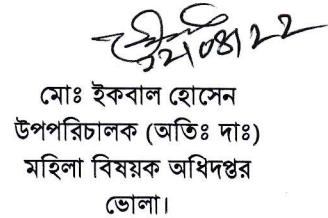 ২২/০৪/২২
মোঃ ইকবাল হোসেন
উপপরিচালক (অতিঃ দাঃ)
মহিলা বিষয়ক অধিদপ্তর
ভোলা।